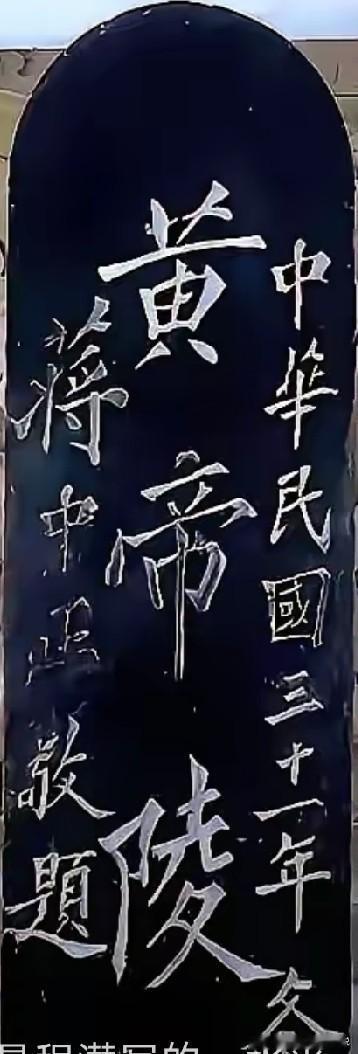 中華民國三十一年冬
黃帝陵
蔣中正敬題
是程潛寫的